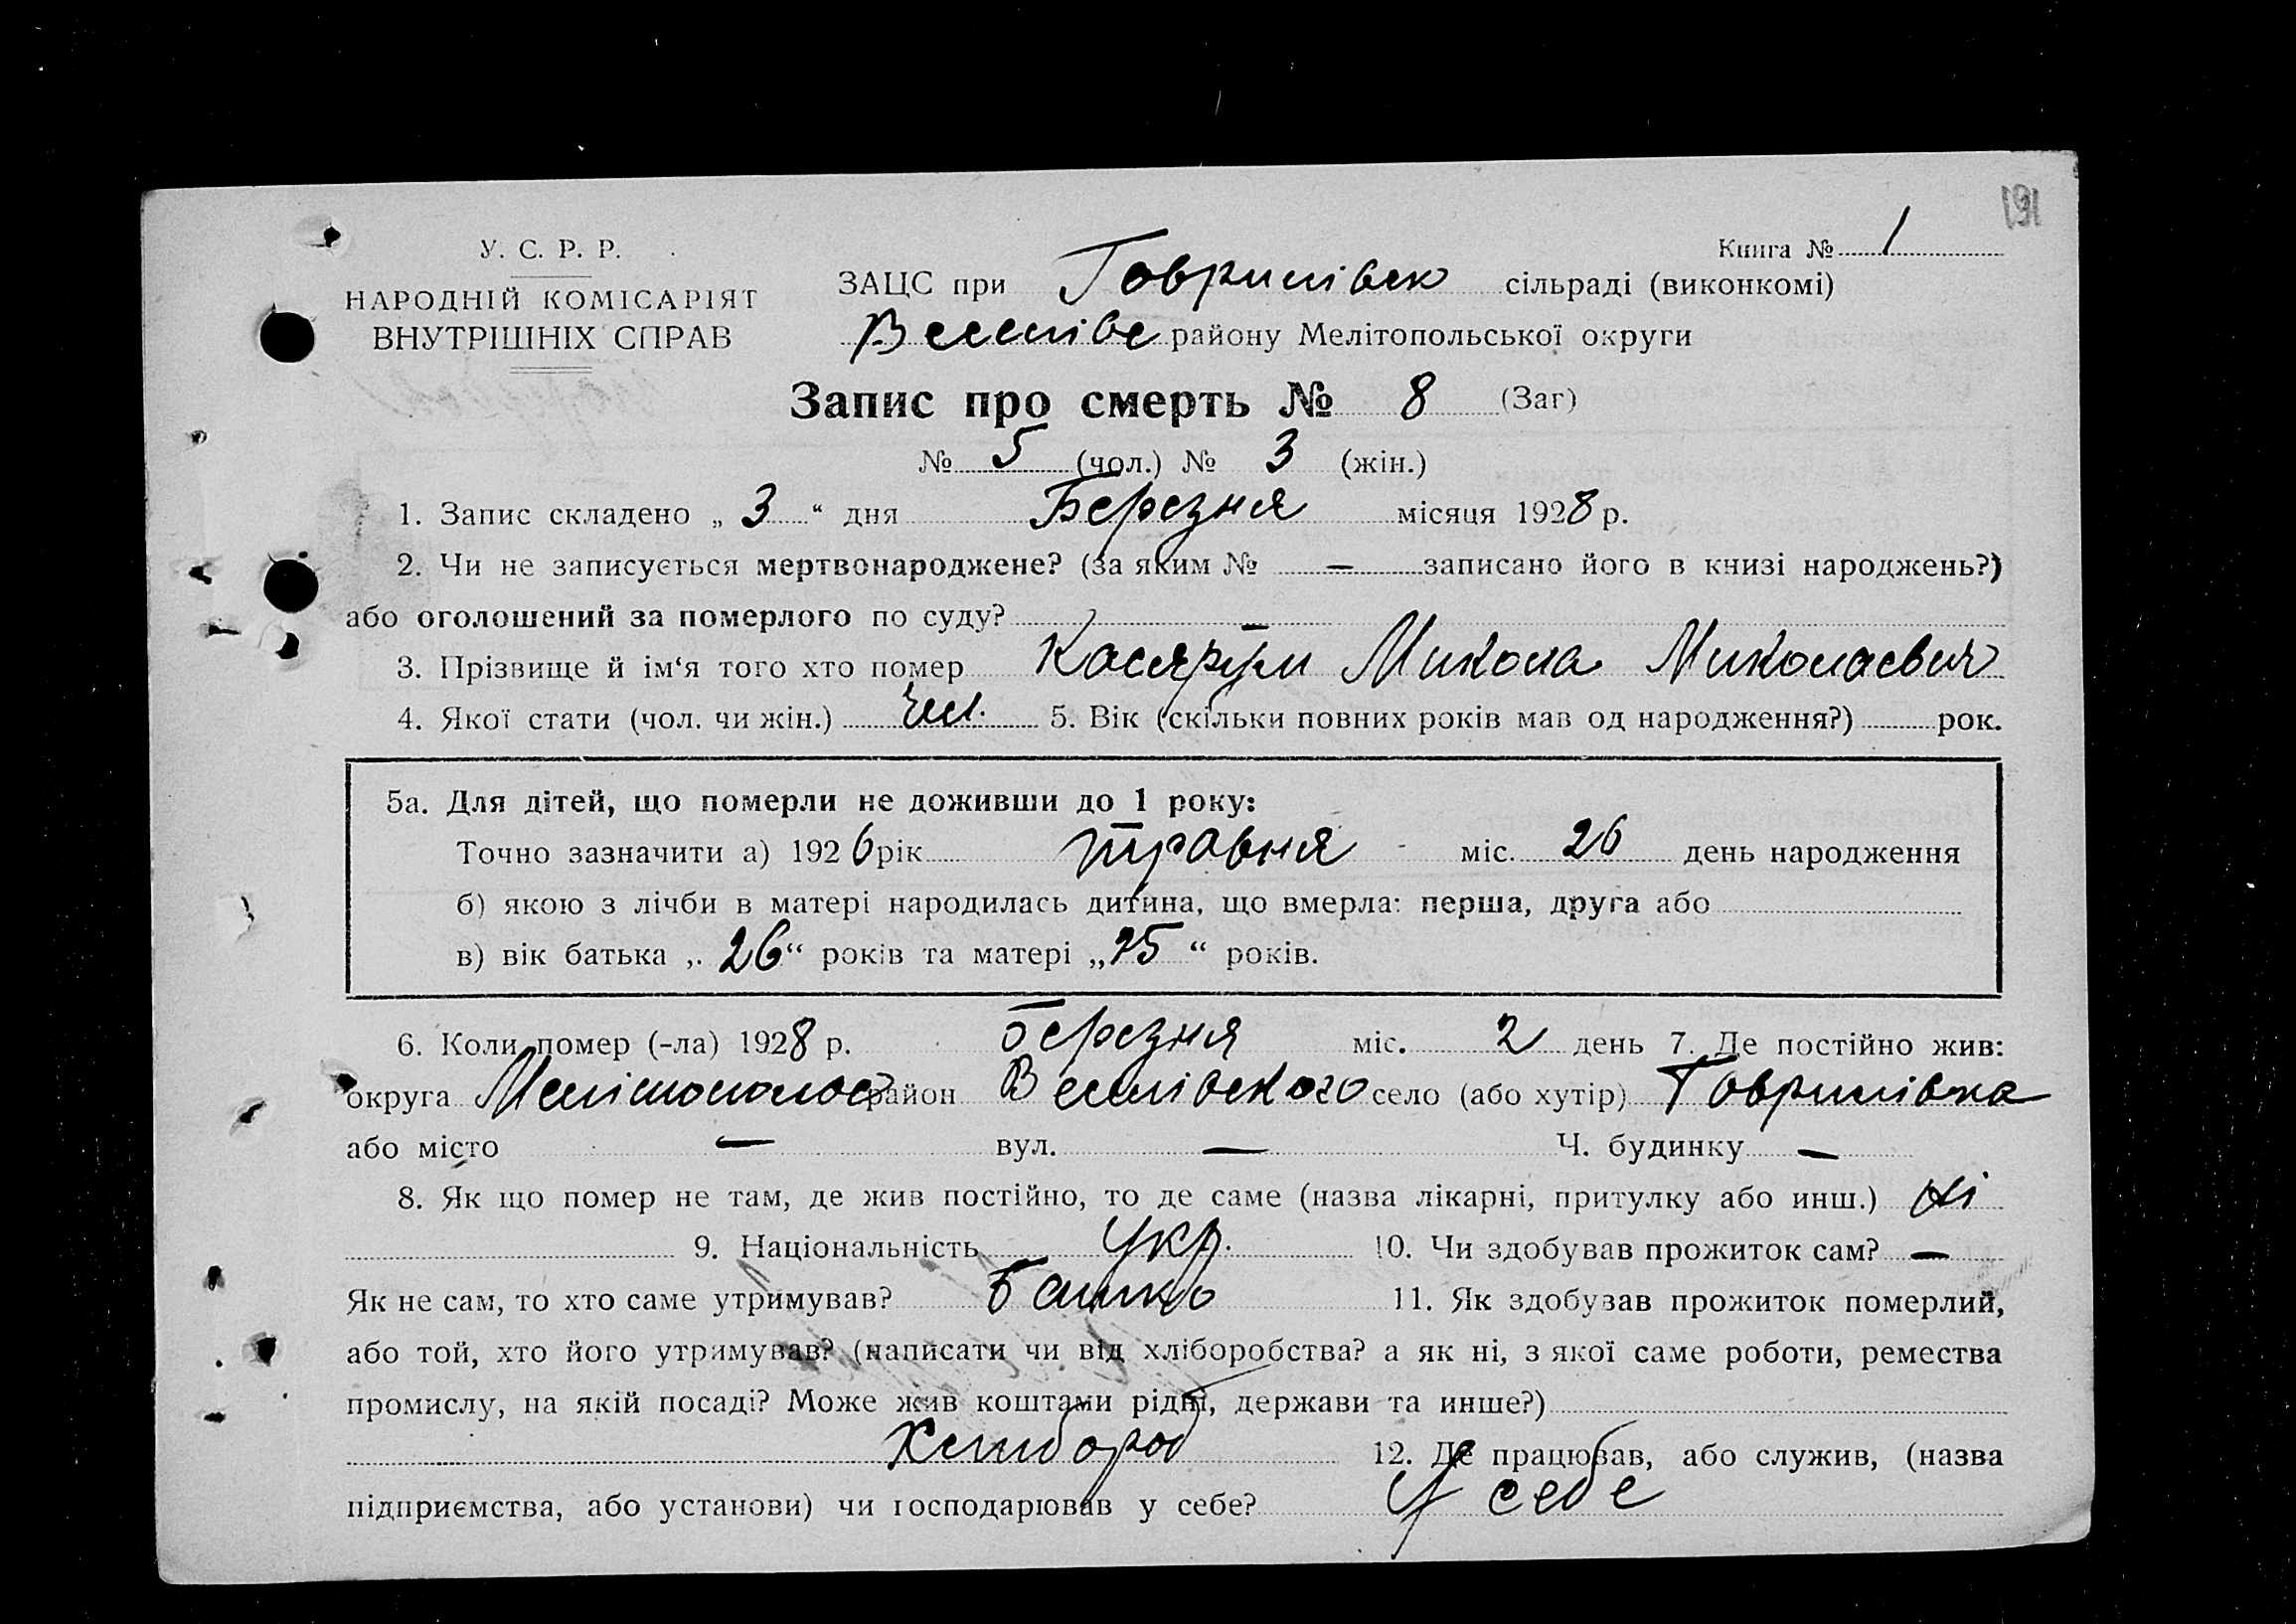 191
Книга № 1
У. С. Р. Р.
НАРОДНІЙ КОМІСАРІЯТ
ВНУТРІШНІХ СПРАВ
ЗАЦС при Гаврилівск сільраді (виконкомі)
Веселівс району Мелітопольської округи
Запис про смерть № 8 (Заг)
№ 5 (чол.) № 3 (жін.)
1. Запис складено „ 3 “ дня Березня місяця 1928 р.
2. Чи не записується мертвонароджене? (за яким № — записано його в книзі народжень?)
або оголошений за померлого по суду? —
3. Прізвище й ім‘я того хто помер Микола Миколаевич
4. Якої стати (чол. чи жін.) чол. 5. Вік (скільки повних років мав од народження?) рок.
5а. Для дітей, що померли не доживши до 1 року:
Точно зазначити а) 1926 рік травня міс. 26 день народження
б) якою з лічби в матері народилась дитина, що вмерла: перша, друга або
в) вік батька „ 26 “ років та матері „ 25 “ років.
6. Коли помер (-ла) 1928 р. березня міс. 2 день 7. Де постійно жив:
округа район Веселівского село (або хутір) Гаврилівка
або місто — вул. — Ч. будинку —
8. Як що помер не там, де жив постійно, то де саме (назва лікарні, притулку або инш.) ні
9. Національність Укр. 10. Чи здобував прожиток сам? —
Як не сам, то хто саме утримував? Батько 11. Як здобував прожиток померлий,
або той, хто його утримував? (написати чи від хліборобства? а як ні, з якої саме роботи, ремества
промислу, на якій посаді? Може жив коштами рідні, держави та инше?)
Хлибороб 12. Де працював, або служив, (назва
підприємства, або установи) чи господарював у себе? У себе